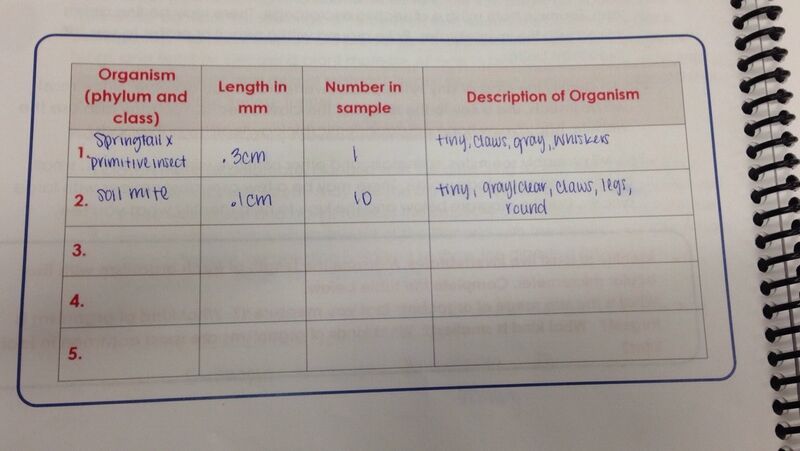 Organism
(phylum and
class)
Length in
mm
Number in
sample
Description of Organism
1. Springtail x
primitive insect
.3cm
1
tiny, claws, gray, whiskers
2. soil mite
.1cm
10
tiny, gray/clear, claws, legs,
round
3.
4.
5.